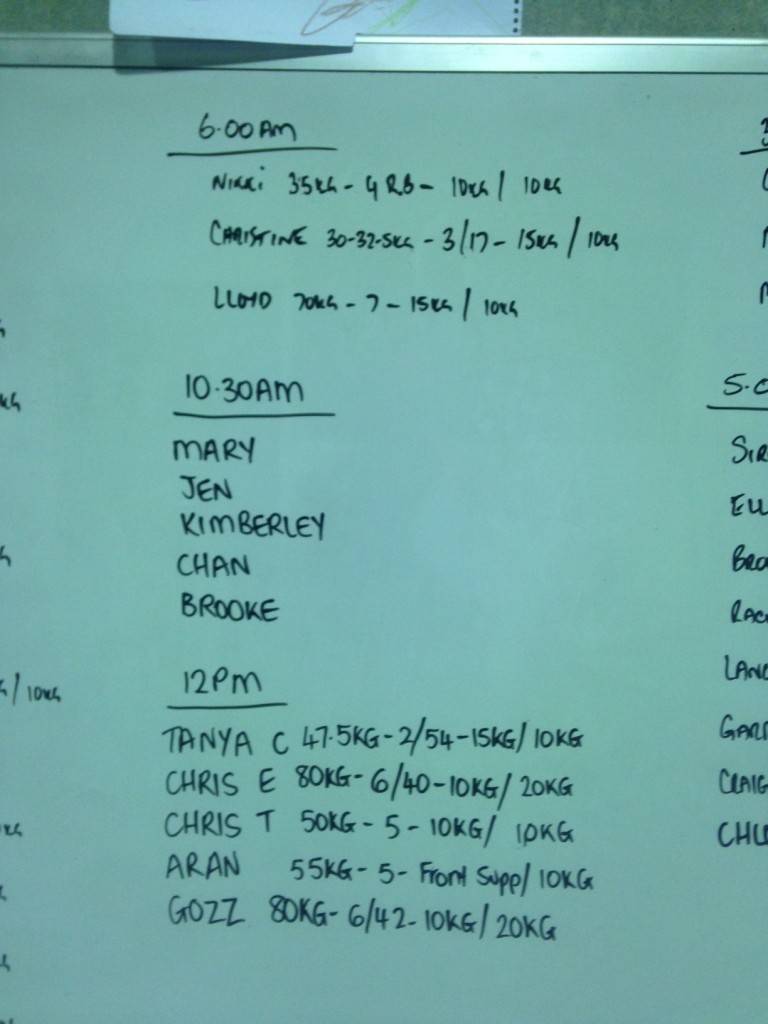 6.00AM
NIKKI 35KG - 4 RB - 10KG / 10KG
CHRISTINE 30-32.5KG - 3/17 - 15KG / 10KG
LLOYD 70KG - 7 - 15KG / 10KG
10.30AM
MARY
JEN
KIMBERLEY
CHAN
BROOKE
12PM
TANYA C 47.5KG - 2/54 - 15KG / 10KG
CHRIS E 80KG - 6/40 - 10KG / 20KG
CHRIS T 50KG - 5 - 10KG / 10KG
ARAN 55KG - 5 - Front Supp / 10KG
GOZZ 80KG - 6/42 - 10KG / 20KG
/ 10KG